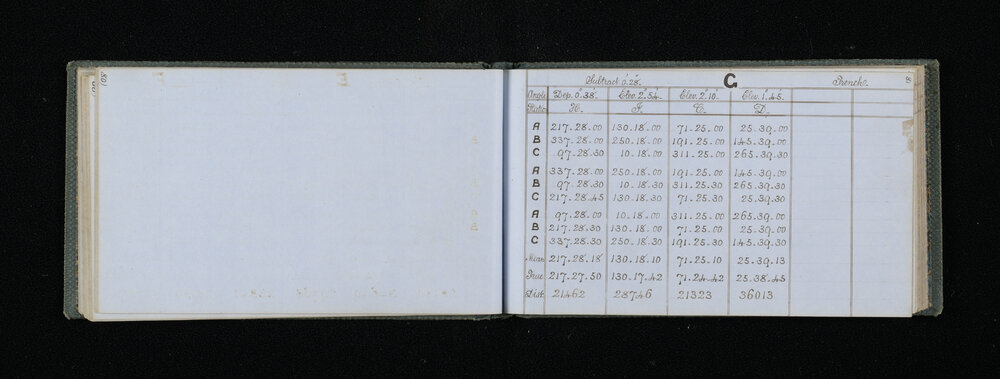 80
Subtract 0°.28" G French.
Angle Dep. 0°.38' Elev. 2°.54' Elev. 2°.10' Elev. 1°.45
Station H. F. C. D.
A 217.28.00 130.18.00 71.25.00 25.39.00
B 337.28.00 250.18.00 191.25.00 145.39.00
C 97.28.30 10.18.00 311.25.00 265.39.30
A 337.28.00 250.18.00 191.25.00 145.39.00
B 97.28.30 10.18.30 311.25.30 265.39.30
C 217.28.45 130.18.30 71.25.30 25.39.30
A 97.28.00 10.18.00 311.25.00 265.39.00
B 217.28.30 130.18.00 71.25.00 25.39.00
C 337.28.30 250.18.30 191.25.30 145.39.30
Mean 217.28.18 130.18.10 71.25.10 25.39.13
True 217.27.50 130.17.42 71.24.42 25.38.45
Dist. 21462 28746 21323 36013